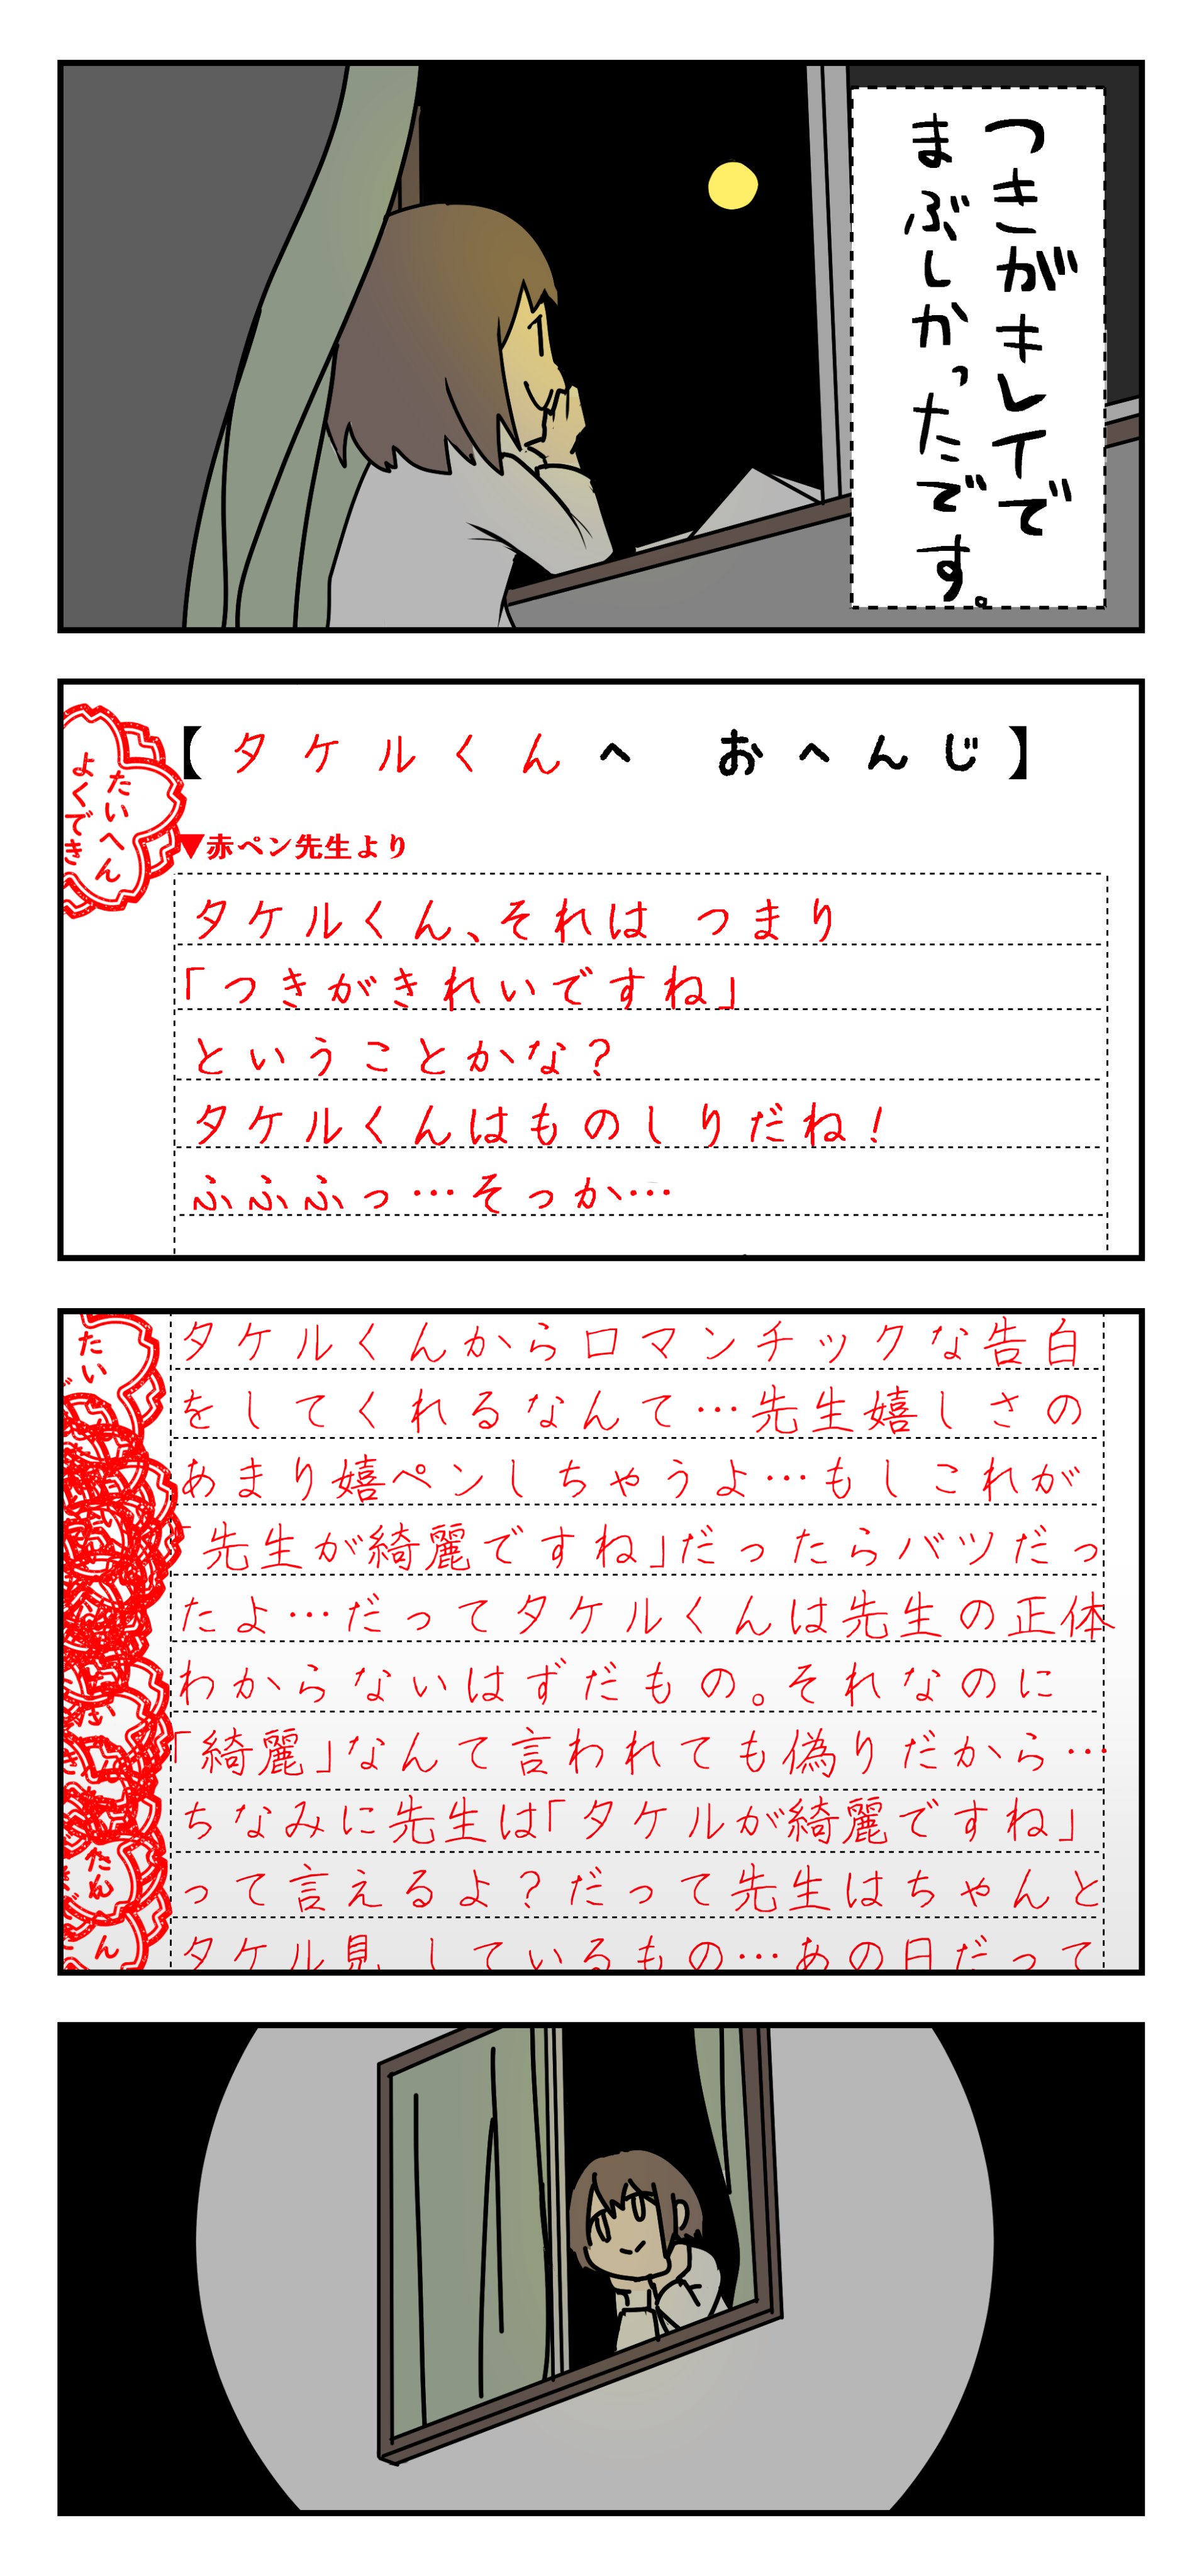 つきがキレイで
まぶしかったです。
【タケルくんへ おへんじ】
たいへん
よくでき
▼赤ペン先生より
タケルくん、それは つまり
「つきがきれいですね」
ということかな？
タケルくんはものしりだね！
ふふふっ…そっか…
たい
タケルくんからロマンチックな告白
をしてくれるなんて…先生嬉しさの
あまり嬉ペンしちゃうよ…もしこれが
「先生が綺麗ですね」だったらバツだっ
たよ…だってタケルくんは先生の正体
わからないはずだもの。それなのに
「綺麗」なんて言われても偽りだから…
ちなみに先生は「タケルが綺麗ですね」
って言えるよ？だって先生はちゃんと
タケル見 しているもの…あの日だって